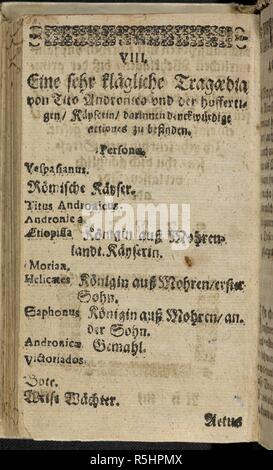 VIII.
Eine sehr klägliche Tragœdia
von Tito Andronico vnd der hoffertigen/
Käyserin/ darinnen denckwürdige
actiones zu befinden.
Personæ.
Vespasianus.
Römische Käyser.
Titus Andronicus.
Andronica
Ætiopissa Königin auß Mohren-
landt. Käyserin.
Morian.
Helicates Königin auß Mohren/ erster
Sohn.
Saphonus Königin auß Mohren/ an-
der Sohn.
Andronicæ Gemahl.
Victoriados.
Bote.
Weise Wächter.
Actus
alamy
Image ID: R5HPMX
www.alamy.com